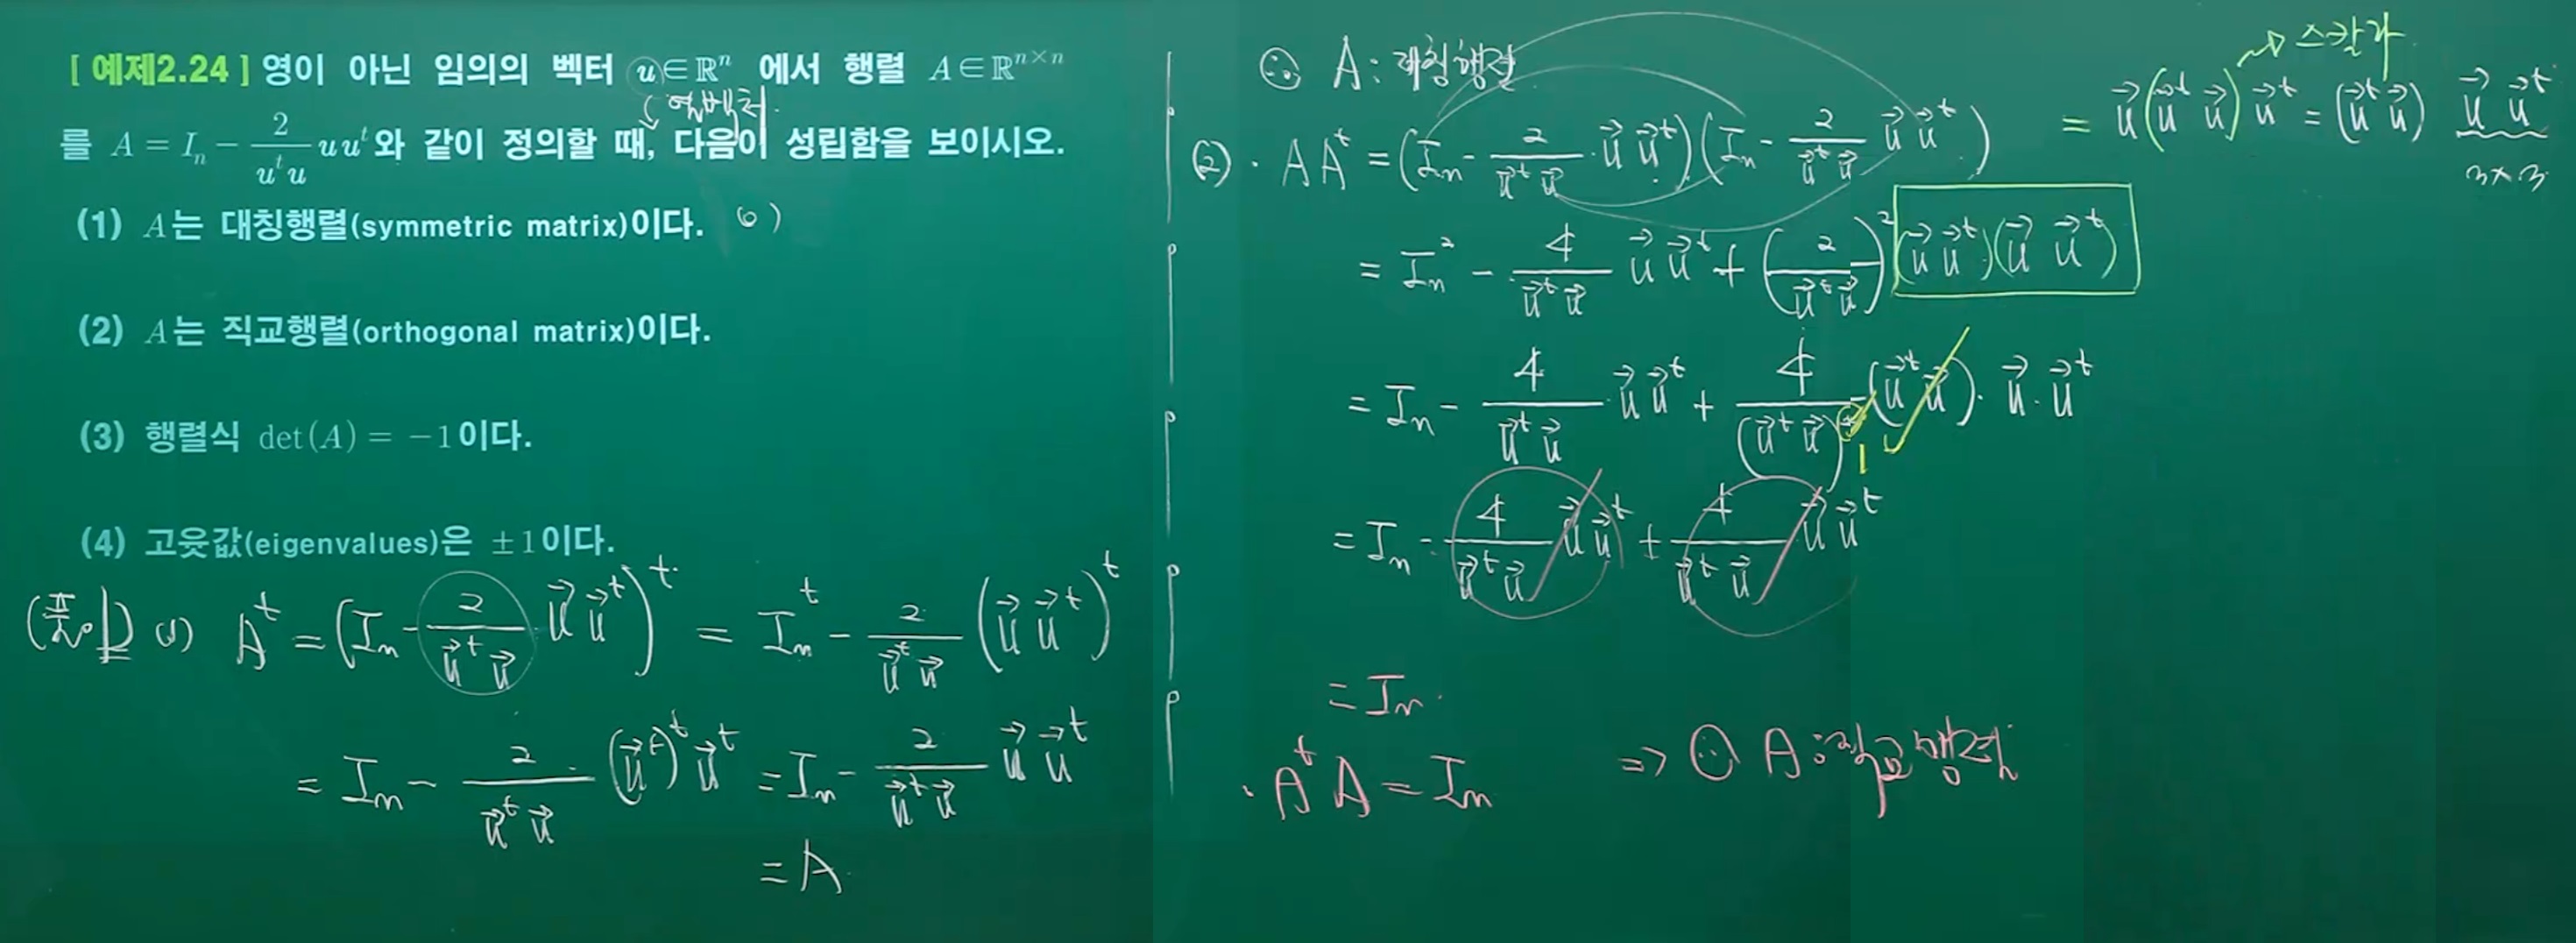 [ 예제2.24 ] 영이 아닌 임의의 벡터 u∈ℝⁿ 에서 행렬 A∈ℝⁿˣⁿ
열벡터
를 A = Iₙ − 2/(uᵗu) u uᵗ 와 같이 정의할 때, 다음이 성립함을 보이시오.
(1) A는 대칭행렬(symmetric matrix)이다.
(2) A는 직교행렬(orthogonal matrix)이다.
(3) 행렬식 det(A) = −1이다.
(4) 고윳값(eigenvalues)은 ±1이다.
(풀이) (1) Aᵗ = (Iₙ − 2/(u⃗ᵗu⃗) u⃗ u⃗ᵗ)ᵗ = Iₙᵗ − 2/(u⃗ᵗu⃗) (u⃗ u⃗ᵗ)ᵗ
= Iₙ − 2/(u⃗ᵗu⃗) · (u⃗ᵗ)ᵗ u⃗ᵗ = Iₙ − 2/(u⃗ᵗu⃗) u⃗ u⃗ᵗ
= A
∴ A : 대칭행렬
(2) · AAᵗ = (Iₙ − 2/(u⃗ᵗu⃗) · u⃗ u⃗ᵗ)(Iₙ − 2/(u⃗ᵗu⃗) u⃗ u⃗ᵗ)
= Iₙ² − 4/(u⃗ᵗu⃗) u⃗ u⃗ᵗ + (2/(u⃗ᵗu⃗))² (u⃗ u⃗ᵗ)(u⃗ u⃗ᵗ)
= Iₙ − 4/(u⃗ᵗu⃗) · u⃗ u⃗ᵗ + 4/(u⃗ᵗu⃗)² (u⃗ᵗu⃗) · u⃗ · u⃗ᵗ
1
= Iₙ − 4/(u⃗ᵗu⃗) u⃗ u⃗ᵗ + 4/(u⃗ᵗu⃗) u⃗ u⃗ᵗ
= Iₙ
· AᵗA = Iₙ ⇒ ∴ A : 직교행렬
스칼라
= u⃗(u⃗ᵗ u⃗) u⃗ᵗ = (u⃗ᵗ u⃗) u⃗ u⃗ᵗ